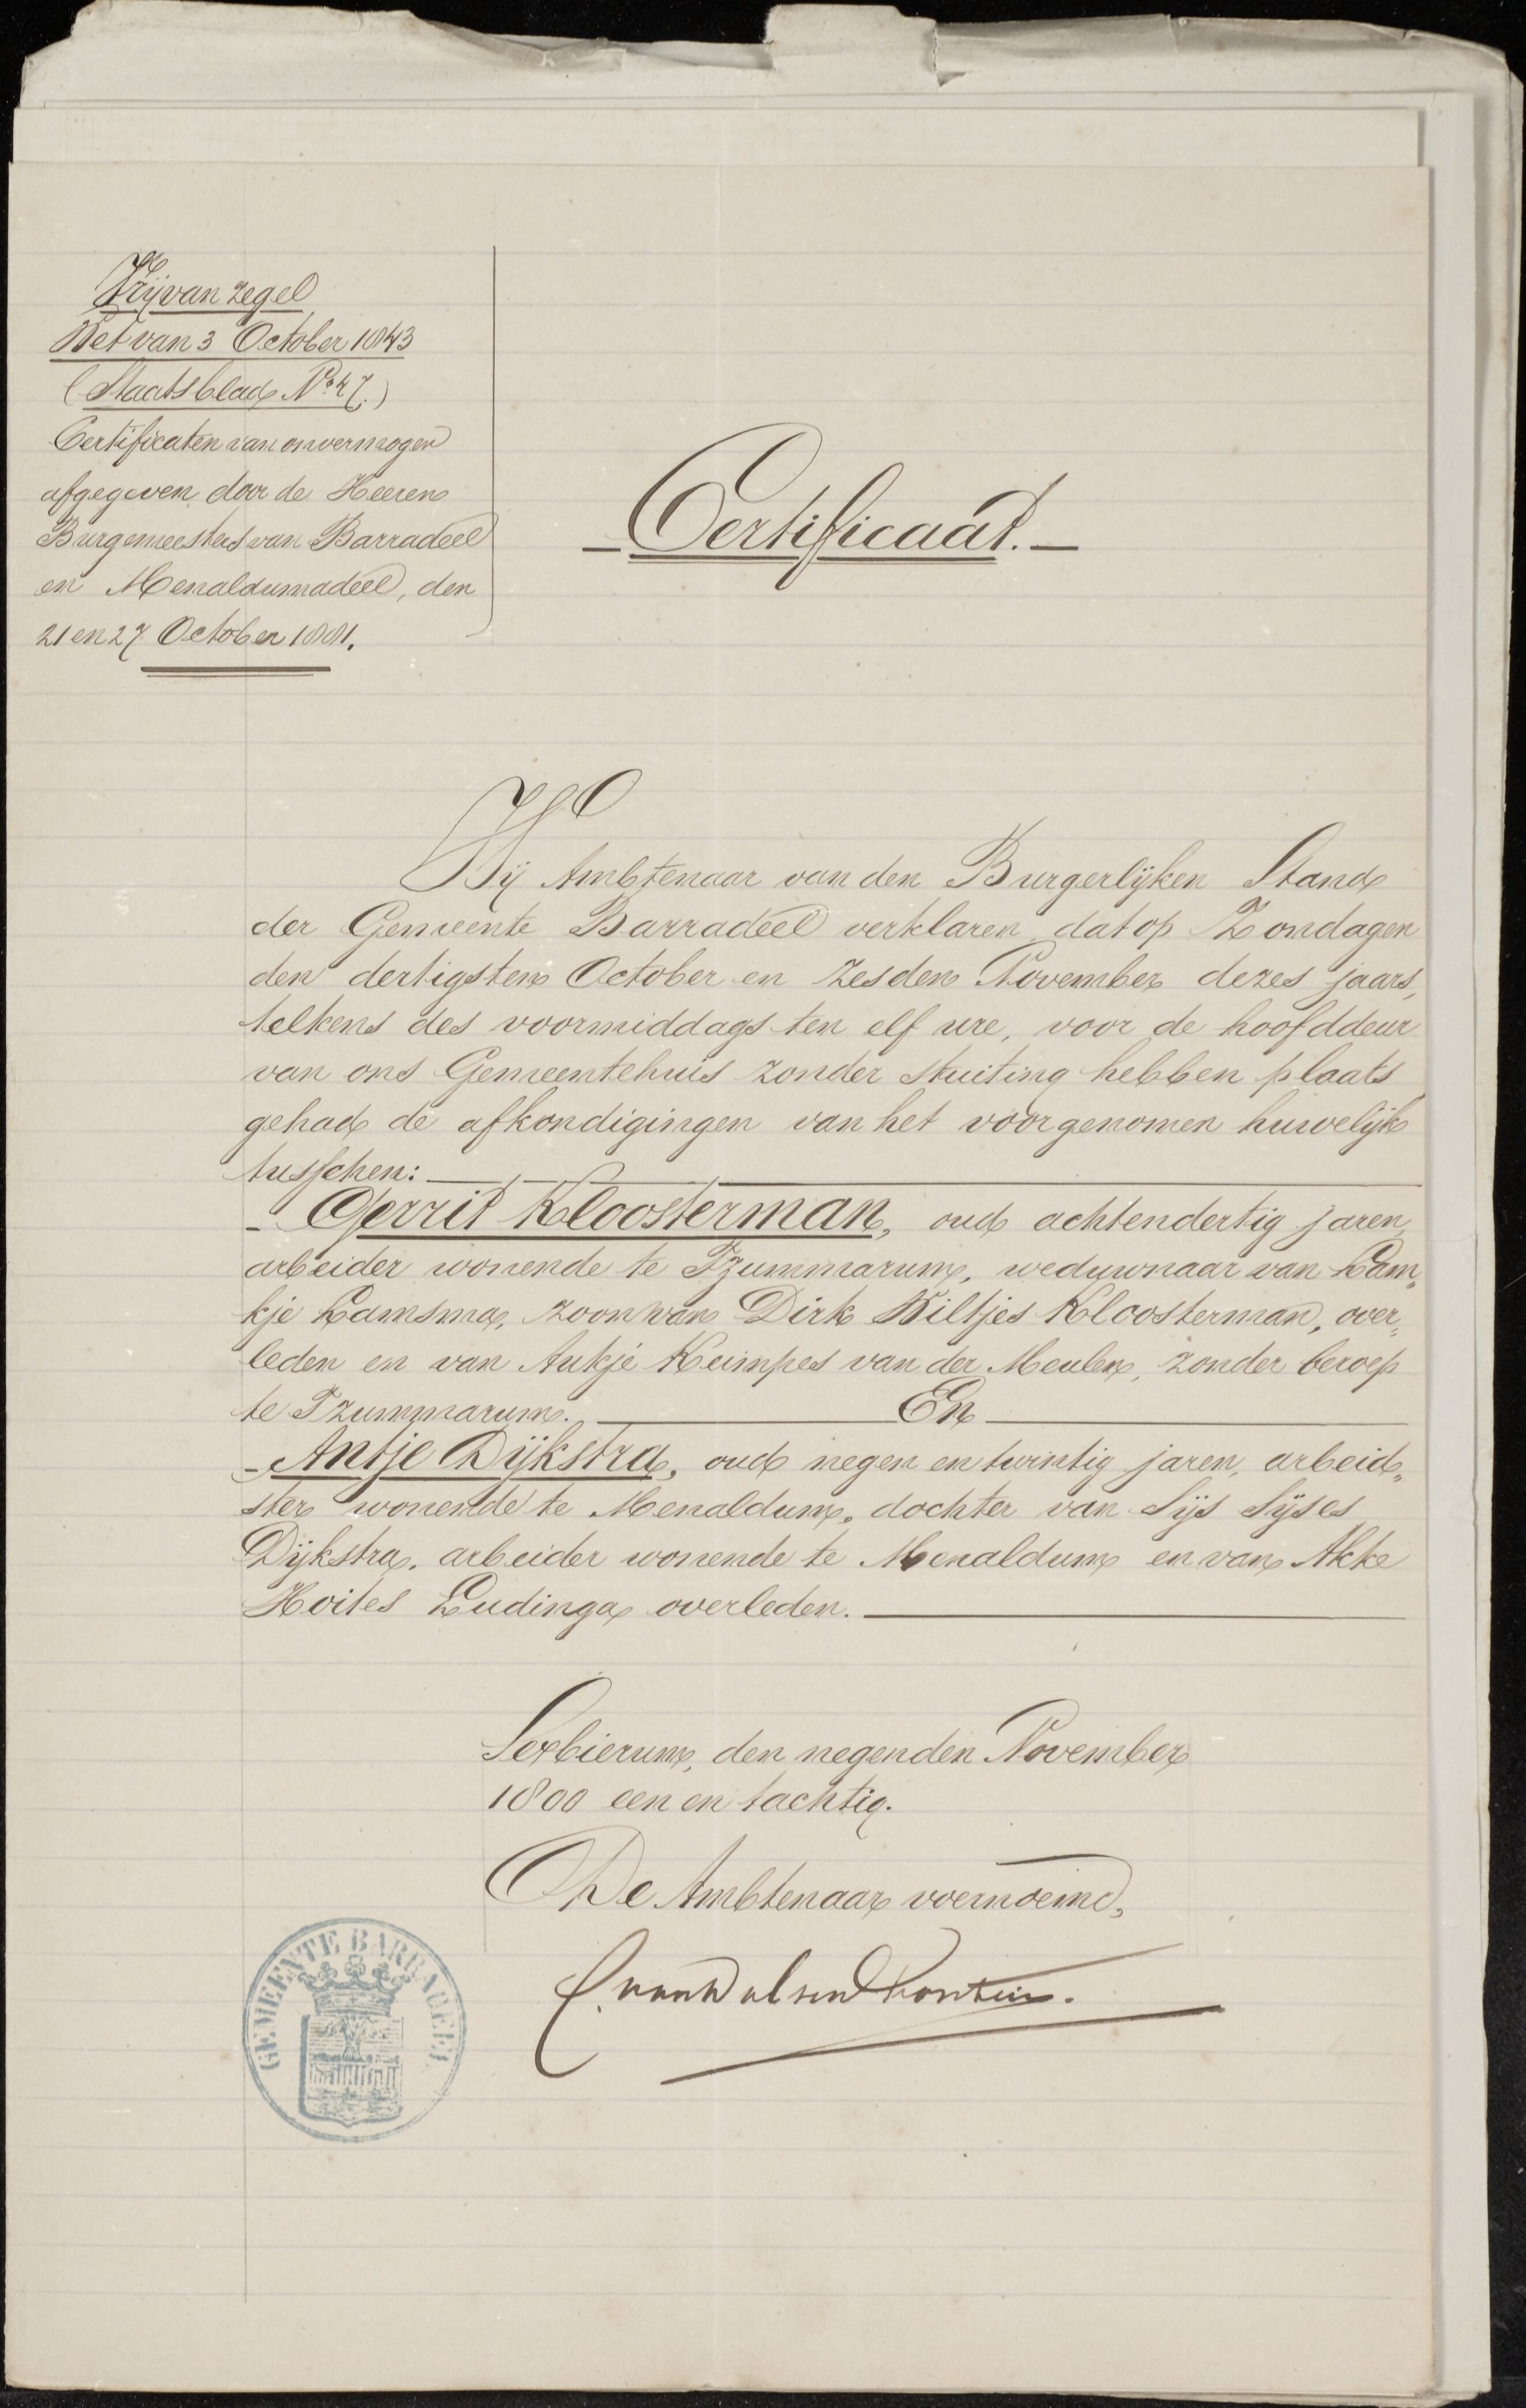 Vrij van zegel
Wet van 3 October 1843
(Staatsblad No. 47.)
Certificaten van onvermogen
afgegeven door de Heeren
Burgemeesters van Barradeel
en Menaldumadeel, den
21 en 27 October 1881.
Certificaat.
Wij Ambtenaar van den Burgerlijken Stand
der Gemeente Barradeel verklaren, dat op Zondagen
den dertigsten October en zesden November dezes jaars,
telkens des voormiddags ten elf ure, voor de hoofddeur
van ons Gemeentehuis zonder stuiting hebben plaats
gehad de afkondigingen van het voorgenomen huwelijk
tusschen:
Gerrit Kloosterman, oud achtendertig jaren,
arbeider wonende te Tzummarum, weduwnaar van Lam„
kje Lamsma, zoon van Dirk Wiltjes Kloosterman, over„
leden en van Aukje Keimpes van der Meulen, zonder beroep
te Tzummarum. En
Antje Dijkstra, oud negen en twintig jaren, arbeid„
ster wonende te Menaldum, dochter van Sijs Sijses
Dijkstra, arbeider wonende te Menaldum en van Akke
Hoites Ludinga overleden.
Sexbierum, den negenden November
1800 een en tachtig.
De Ambtenaar voornoemd,
GEMEENTE BARRADEEL